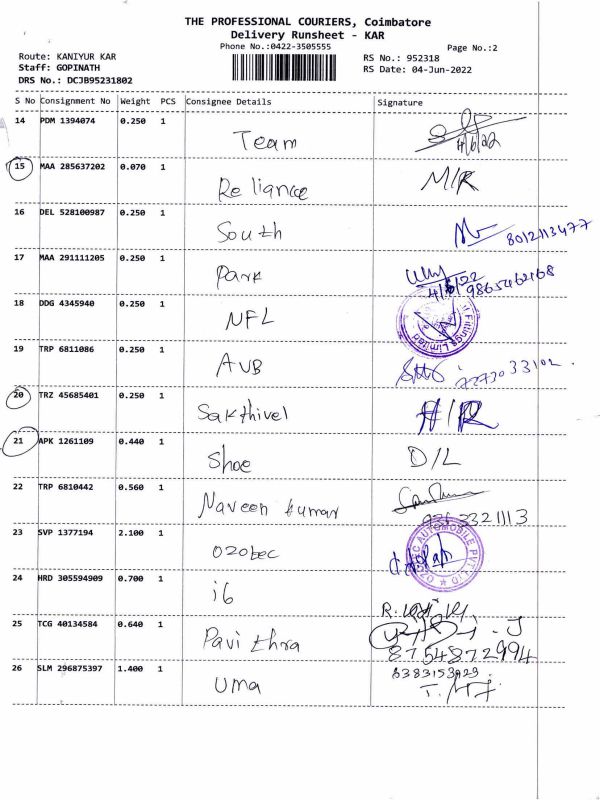 THE PROFESSIONAL COURIERS, Coimbatore
Delivery Runsheet - KAR
Phone No.:0422-3505555
Page No.:2
Route: KANIYUR KAR
Staff: GOPINATH
DRS No.: DCJB95231802
RS No.: 952318
RS Date: 04-Jun-2022
S No Consignment No Weight PCS Consignee Details Signature
14 PDM 1394074 0.250 1
Team 4/6/22
15 MAA 285637202 0.070 1
Reliance M/R
16 DEL 528100987 0.250 1
South 8012113477
17 MAA 291111205 0.250 1
Park 4/6/22 9865462168
18 DDG 4345940 0.250 1
NFL Fittings Limited
19 TRP 6811086 0.250 1
AVB
20 TRZ 45685401 0.250 1
Sakthivel H/R
21 APK 1261109 0.440 1
Shoe D/L
22 TRP 6810442 0.560 1
Naveen kumar
23 SVP 1377194 2.100 1
Ozobec AUTOMOBILE PVT LTD
24 HRD 305594909 0.700 1
i6
25 TCG 40134584 0.640 1
Pavithra 8754872994
26 SLM 296875397 1.400 1
Uma 8383153929